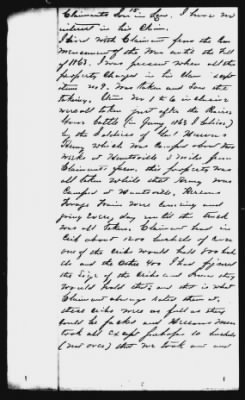 Claimants Son in Law. I have no
interest in his Claim.
I lived with Claimant from the Com
mencement of the War until the Fall
of 1863. I was present when all the
property Charged in his Claim except
Item No 9. was taken and saw the
taking. Item No 1 to 6 inclusive
were all taken just after the
Battle (in June 1863 I believe)
by the Soldiers of Genl
Army which was Camped about two
weeks at Huntsville 2 miles from
Claimants farm, this property was
all taken while that Army was
Camped at Huntsville,
Forage Trains were coming and
going every day until the
was all taken. Claimant had in
Crib about 1200 bushels of corn
one of the Cribs would hold 800 bush
els and the Other 400 I had
the Size of the Cribs and know they
would hold that, and this is what
Claimant always rated them at,
these Cribs were as full as they
could be packed and men
took all except perhaps 10 bushels
(not over) that we took out and